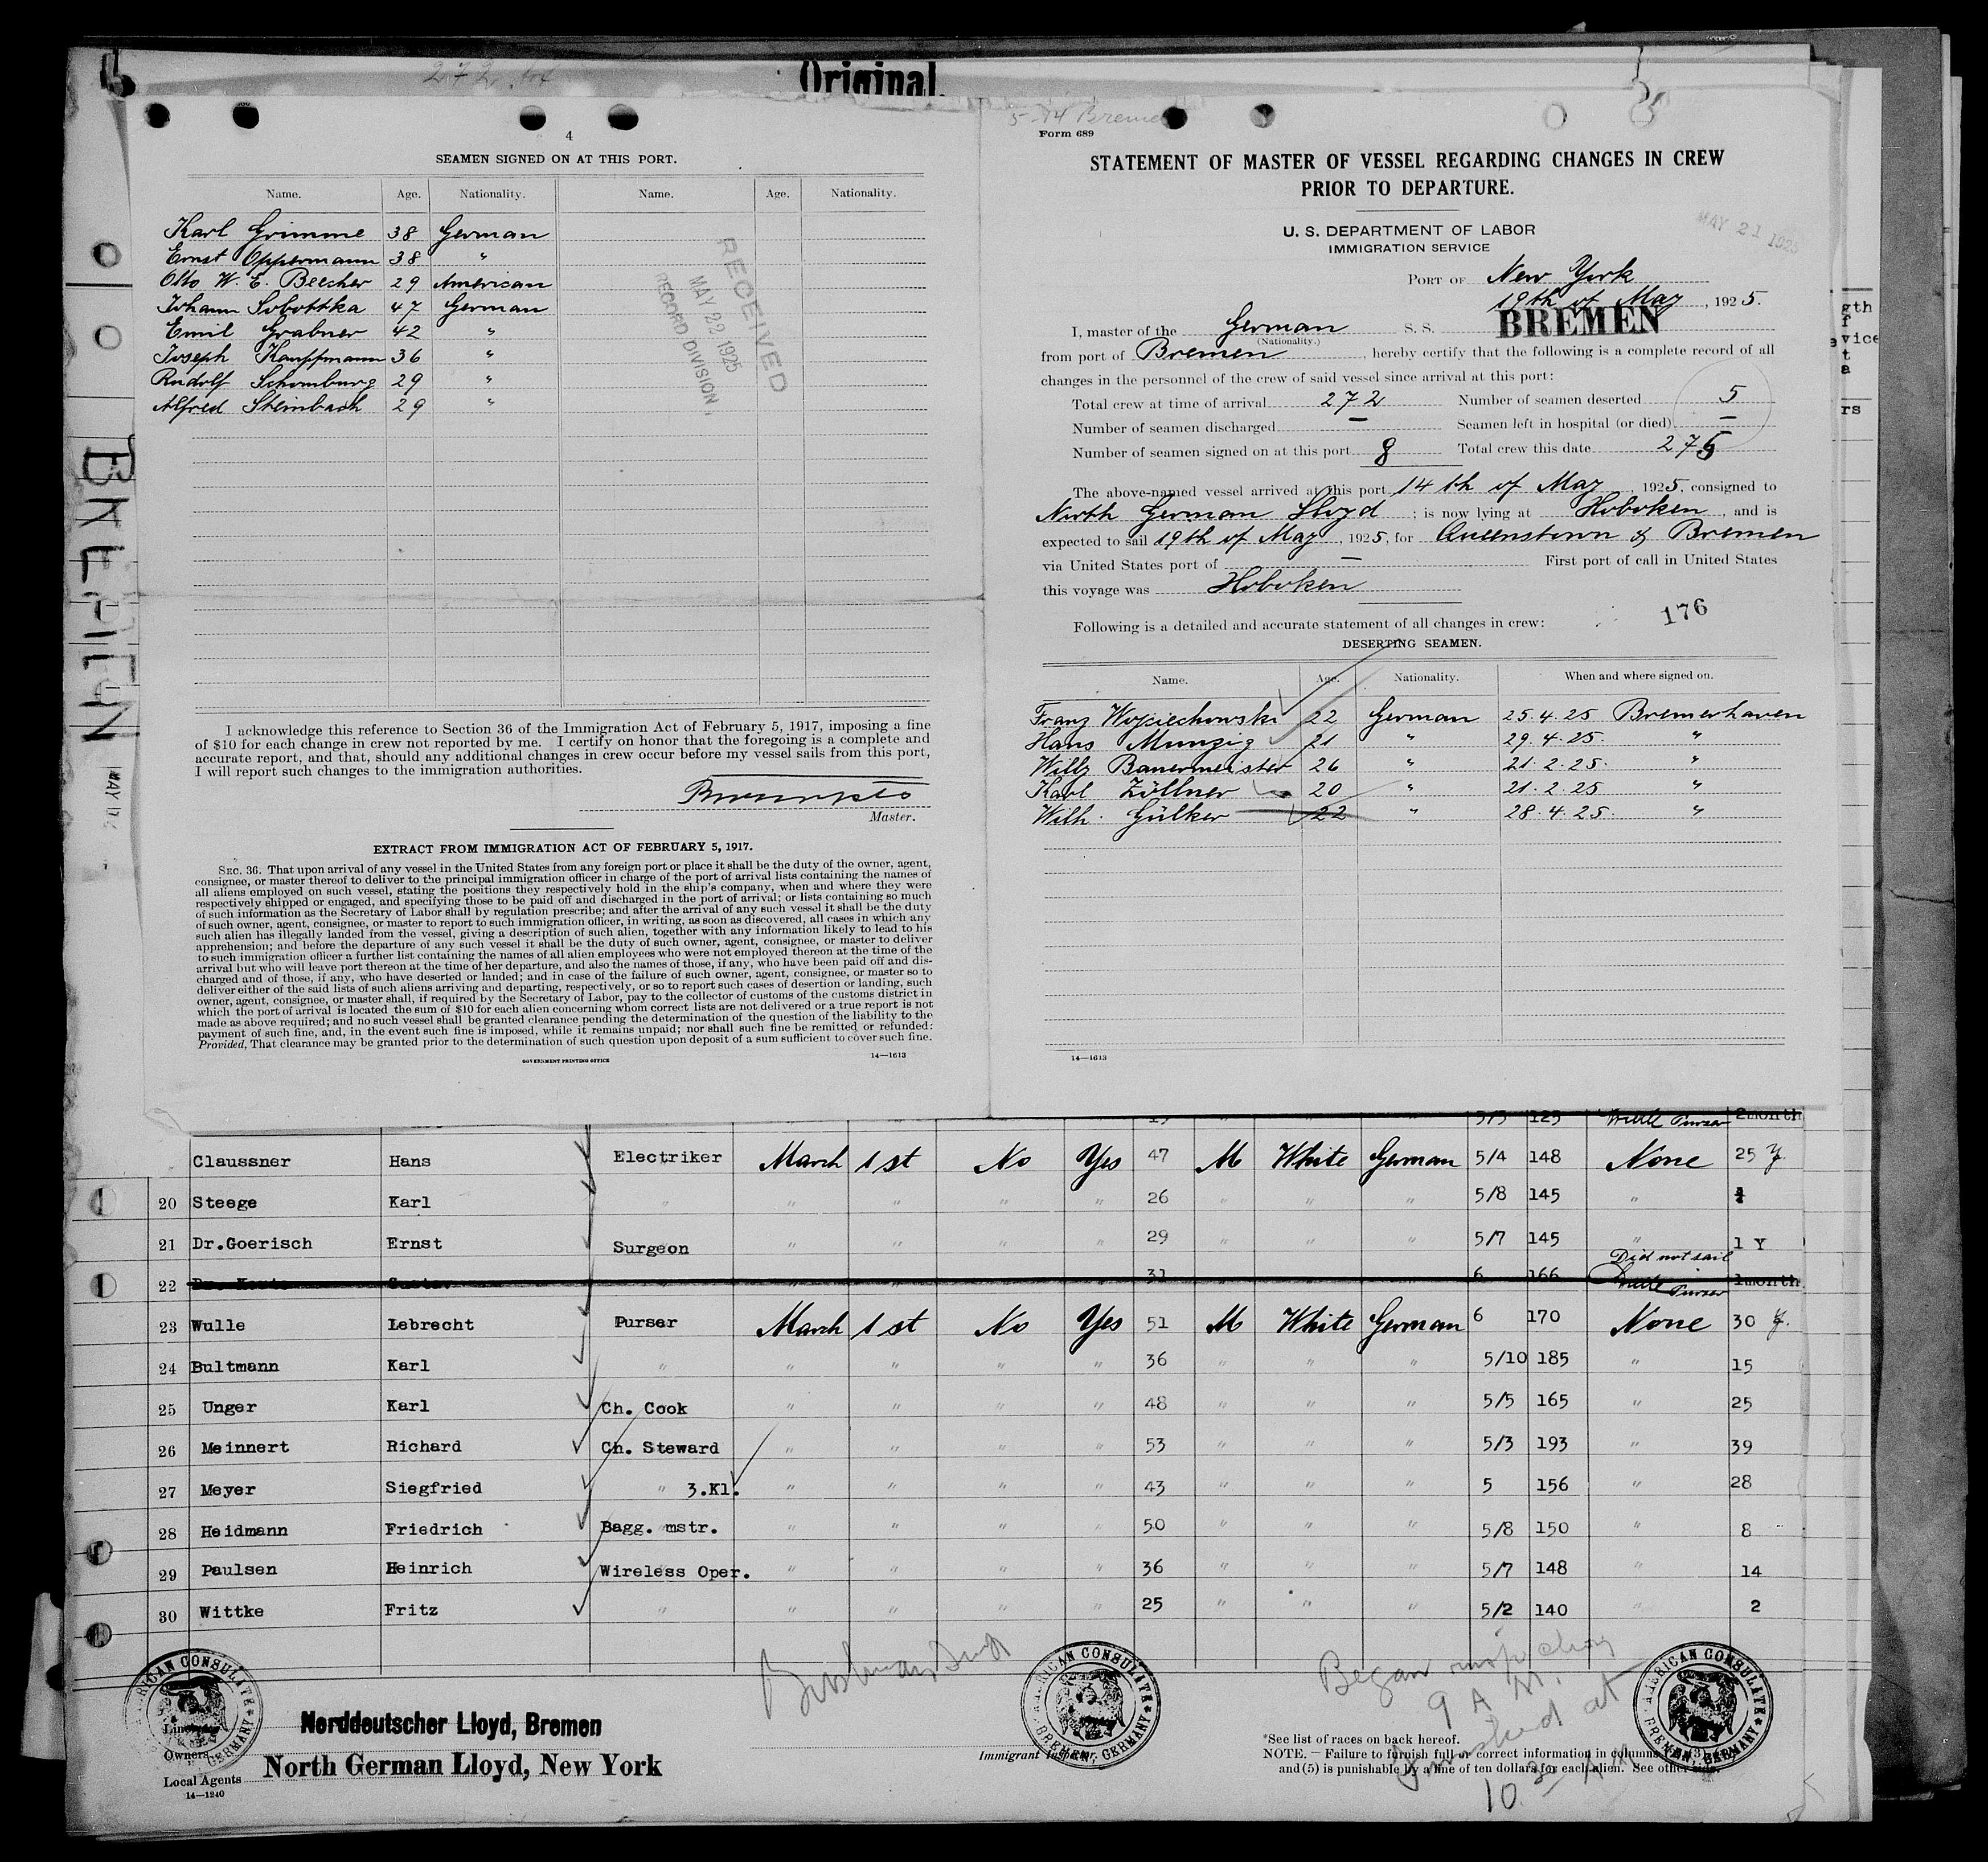 272
Original
4
SEAMEN SIGNED ON AT THIS PORT.
Name. Age. Nationality. Name. Age. Nationality.
Karl Grimme 38 German
Ernst Oppermann 38 "
Otto W. E. Beecher 29 American
Johann Sobottka 47 German
Emil Grabner 42 "
Joseph Kauppmann 36 "
Rudolf Schomburg 29 "
Alfred Steinbach 29 "
RECEIVED
MAY 22 1925
RECORD DIVISION
I acknowledge this reference to Section 36 of the Immigration Act of February 5, 1917, imposing a fine
of $10 for each change in crew not reported by me. I certify on honor that the foregoing is a complete and
accurate report, and that, should any additional changes in crew occur before my vessel sails from this port,
I will report such changes to the immigration authorities.
Master.
EXTRACT FROM IMMIGRATION ACT OF FEBRUARY 5, 1917.
SEC. 36. That upon arrival of any vessel in the United States from any foreign port or place it shall be the duty of the owner, agent,
consignee, or master thereof to deliver to the principal immigration officer in charge of the port of arrival lists containing the names of
all aliens employed on such vessel, stating the positions they respectively hold in the ship's company, when and where they were
respectively shipped or engaged, and specifying those to be paid off and discharged in the port of arrival; or lists containing so much
of such information as the Secretary of Labor shall by regulation prescribe; and after the arrival of any such vessel it shall be the duty
of such owner, agent, consignee, or master to report to such immigration officer, in writing, as soon as discovered, all cases in which any
such alien has illegally landed from the vessel, giving a description of such alien, together with any information likely to lead to his
apprehension; and before the departure of any such vessel it shall be the duty of such owner, agent, consignee, or master to deliver
to such immigration officer a further list containing the names of all alien employees who were not employed thereon at the time of the
arrival but who will leave port thereon at the time of her departure, and also the names of those, if any, who have been paid off and dis-
charged and of those, if any, who have deserted or landed; and in case of the failure of such owner, agent, consignee, or master so to
deliver either of the said lists of such aliens arriving and departing, respectively, or so to report such cases of desertion or landing, such
owner, agent, consignee, or master shall, if required by the Secretary of Labor, pay to the collector of customs of the customs district in
which the port of arrival is located the sum of $10 for each alien concerning whom correct lists are not delivered or a true report is not
made as above required; and no such vessel shall be granted clearance pending the determination of the question of the liability to the
payment of such fine, and, in the event such fine is imposed, while it remains unpaid; nor shall such fine be remitted or refunded:
Provided, That clearance may be granted prior to the determination of such question upon deposit of a sum sufficient to cover such fine.
GOVERNMENT PRINTING OFFICE 14—1613
5-14 Bremen
Form 689
STATEMENT OF MASTER OF VESSEL REGARDING CHANGES IN CREW
PRIOR TO DEPARTURE.
U. S. DEPARTMENT OF LABOR
IMMIGRATION SERVICE
MAY 21 1925
PORT OF New York
19th of May, 1925.
I, master of the German S. S. BREMEN
(Nationality.)
from port of Bremen, hereby certify that the following is a complete record of all
changes in the personnel of the crew of said vessel since arrival at this port:
Total crew at time of arrival 272 Number of seamen deserted 5
Number of seamen discharged — Seamen left in hospital (or died) —
Number of seamen signed on at this port 8 Total crew this date 275
The above-named vessel arrived at this port 14th of May, 1925, consigned to
North German Lloyd; is now lying at Hoboken, and is
expected to sail 19th of May, 1925, for Queenstown & Bremen
via United States port of — First port of call in United States
this voyage was Hoboken
176
Following is a detailed and accurate statement of all changes in crew:
DESERTING SEAMEN.
Name. Age. Nationality. When and where signed on.
Franz Wojciechowski 22 German 25.4.25 Bremerhaven
Hans Munzig 21 " 29.4.25. "
Willy Bauermeister 26 " 21.2.25. "
Karl Zöllner 20 " 21.2.25 "
Wilh. Gülker 22 " 28.4.25. "
14—1613
5/5 125 Wulle Purser 2month
Claussner Hans Electriker March 1st No Yes 47 M White German 5/4 148 None 25 Y.
20 Steege Karl " " " " " 26 " " " 5/8 145 "
21 Dr.Goerisch Ernst Surgeon " " " " 29 " " " 5/7 145 " 1 Y
Did not sail
22 31 6 166 Wulle Purser 1month
23 Wulle Lebrecht Purser March 1st No Yes 51 M White German 6 170 None 30 Y.
24 Bultmann Karl " " " " " 36 " " " 5/10 185 " 15
25 Unger Karl Ch. Cook " " " " 48 " " " 5/5 165 " 25
26 Meinnert Richard Ch. Steward " " " " 53 " " " 5/3 193 " 39
27 Meyer Siegfried " 3.Kl. " " " " 43 " " " 5 156 " 28
28 Heidmann Friedrich Bagg. mstr. " " " " 50 " " " 5/8 150 " 8
29 Paulsen Heinrich Wireless Oper. " " " " 36 " " " 5/7 148 " 14
30 Wittke Fritz " " " " " 25 " " " 5/2 140 " 2
AMERICAN CONSULATE
BREMEN, GERMANY
AMERICAN CONSULATE
BREMEN, GERMANY
AMERICAN CONSULATE
BREMEN, GERMANY
Began inspection
9 A M.
Finished at
10 30 A M
Norddeutscher Lloyd, Bremen
Owners
North German Lloyd, New York
Local Agents
14—1240
Immigrant Inspector.
*See list of races on back hereof.
NOTE.—Failure to furnish full or correct information in columns (3)
and (5) is punishable by a fine of ten dollars for each alien. See other side.